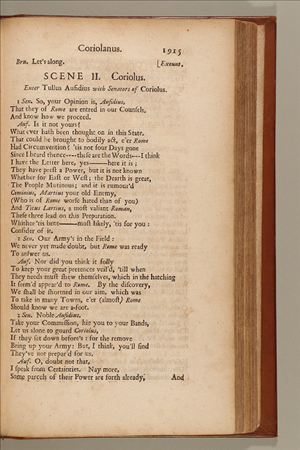 Coriolanus. 1915
Bru. Let's along. [Exeunt.
SCENE II. Coriolus.
Enter Tullus Aufidius with Senators of Coriolus.
1 Sen. So, your Opinion is, Aufidius,
That they of Rome are entred in our Counsels,
And know how we proceed.
Auf. Is it not yours?
What ever hath been thought on in this State,
That could be brought to bodily act, e'er Rome
Had Circumvention? 'tis not four Days gone
Since I heard thence----these are the Words---I think
I have the Letter here, yes----here it is;
They have prest a Power, but it is not known
Whether for East or West; the Dearth is great,
The People Mutinous; and it is rumour'd
Cominius, Martius your old Enemy,
(Who is of Rome worse hated than of you)
And Titus Lartius, a most valiant Roman,
These three lead on this Preparation.
Whither 'tis bent----most likely, 'tis for you:
Consider of it.
1 Sen. Our Army's in the Field:
We never yet made doubt, but Rome was ready
To answer us.
Auf. Nor did you think it folly
To keep your great pretences veil'd, 'till when
They needs must shew themselves, which in the hatching
It seem'd appear'd to Rome. By the discovery,
We shall be shortned in our aim, which was
To take in many Towns, e'er (almost) Rome
Should know we are a-foot.
2 Sen. Noble Aufidius,
Take your Commission, hie you to your Bands,
Let us alone to guard Coriolus,
If they sit down before's: for the remove
Bring up your Army: But, I think, you'll find
They've not prepar'd for us.
Auf. O, doubt not that,
I speak from Certainties. Nay more,
Some parcels of their Power are forth already, And